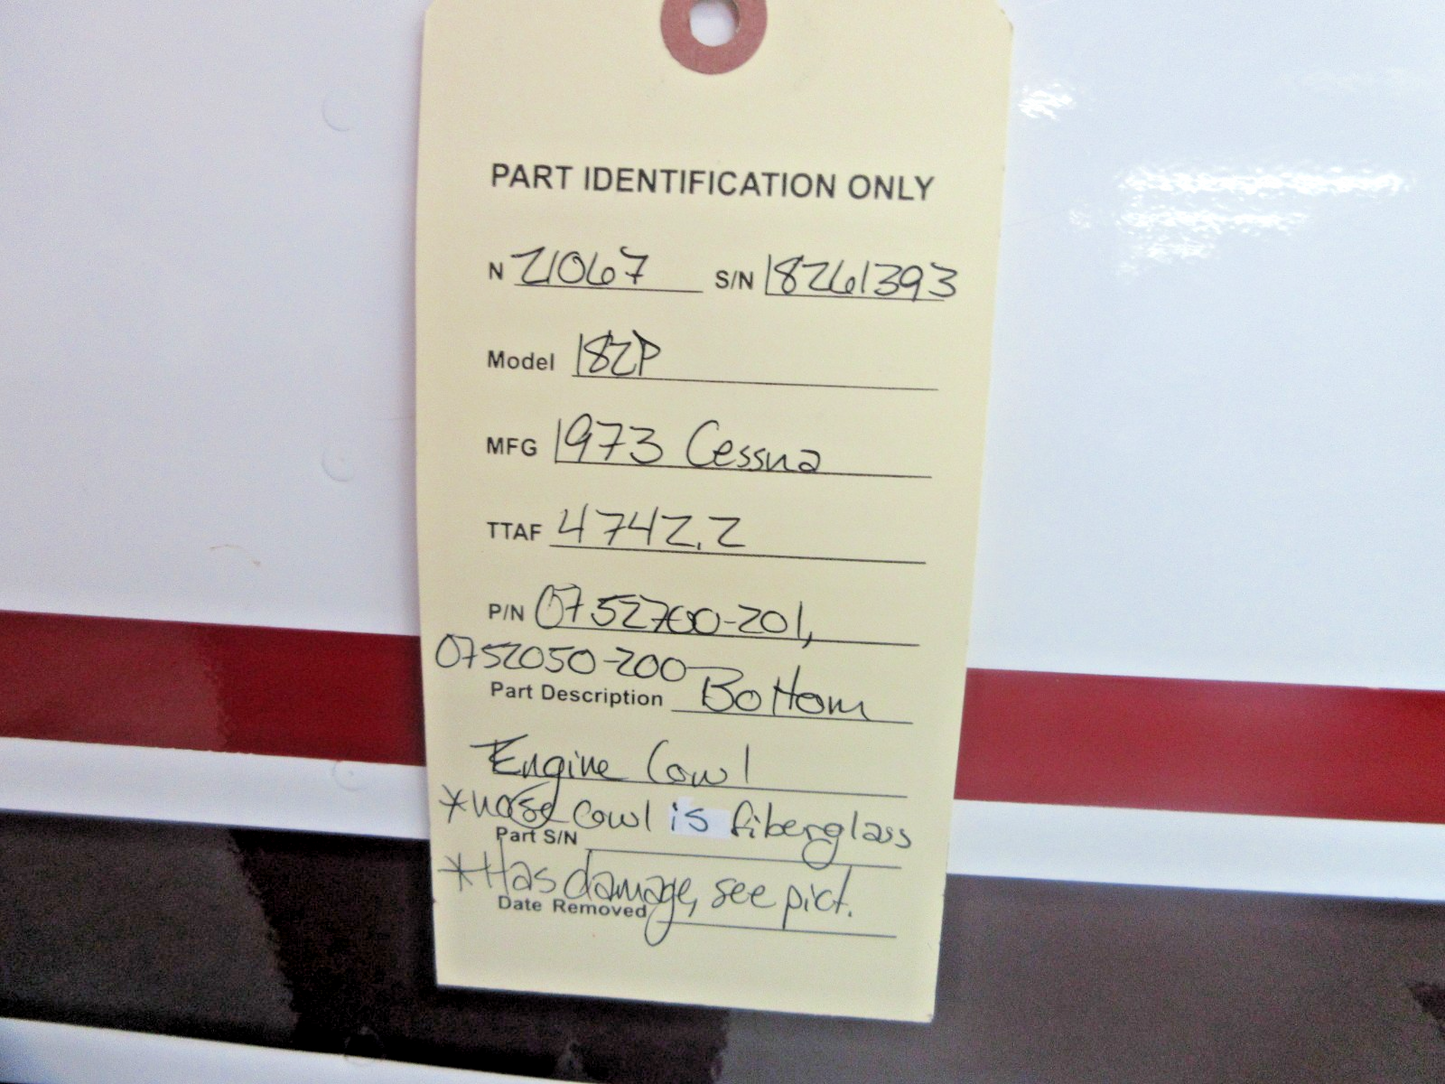 PART IDENTIFICATION ONLY
N 21067 S/N 18261393
Model 182P
MFG 1973 Cessna
TTAF 4742.2
P/N 0752700-201,
0752050-200
Part Description Bottom
Engine Cowl
*nose cowl is fiberglass
Part S/N
*Has damage, see pict.
Date Removed